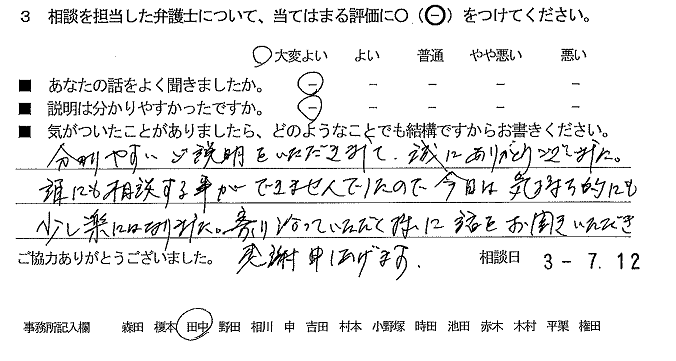 3 相談を担当した弁護士について、当てはまる評価に○（⊖）をつけてください。
大変よい よい 普通 やや悪い 悪い
■ あなたの話をよく聞きましたか。 － － － － －
■ 説明は分かりやすかったですか。 － － － － －
■ 気がついたことがありましたら、どのようなことでも結構ですからお書きください。
分りやすいご説明をいただきまして、誠にありがとうございました。
誰にも相談する事ができませんでしたので今日は気持ち的にも
少し楽になりました。寄り添っていただく様に話をお聞きいただき
感謝申しあげます。
ご協力ありがとうございました。 相談日 3-7.12
事務所記入欄 森田 榎本 田中 野田 相川 申 吉田 村本 小野塚 時田 池田 赤木 木村 平栗 権田